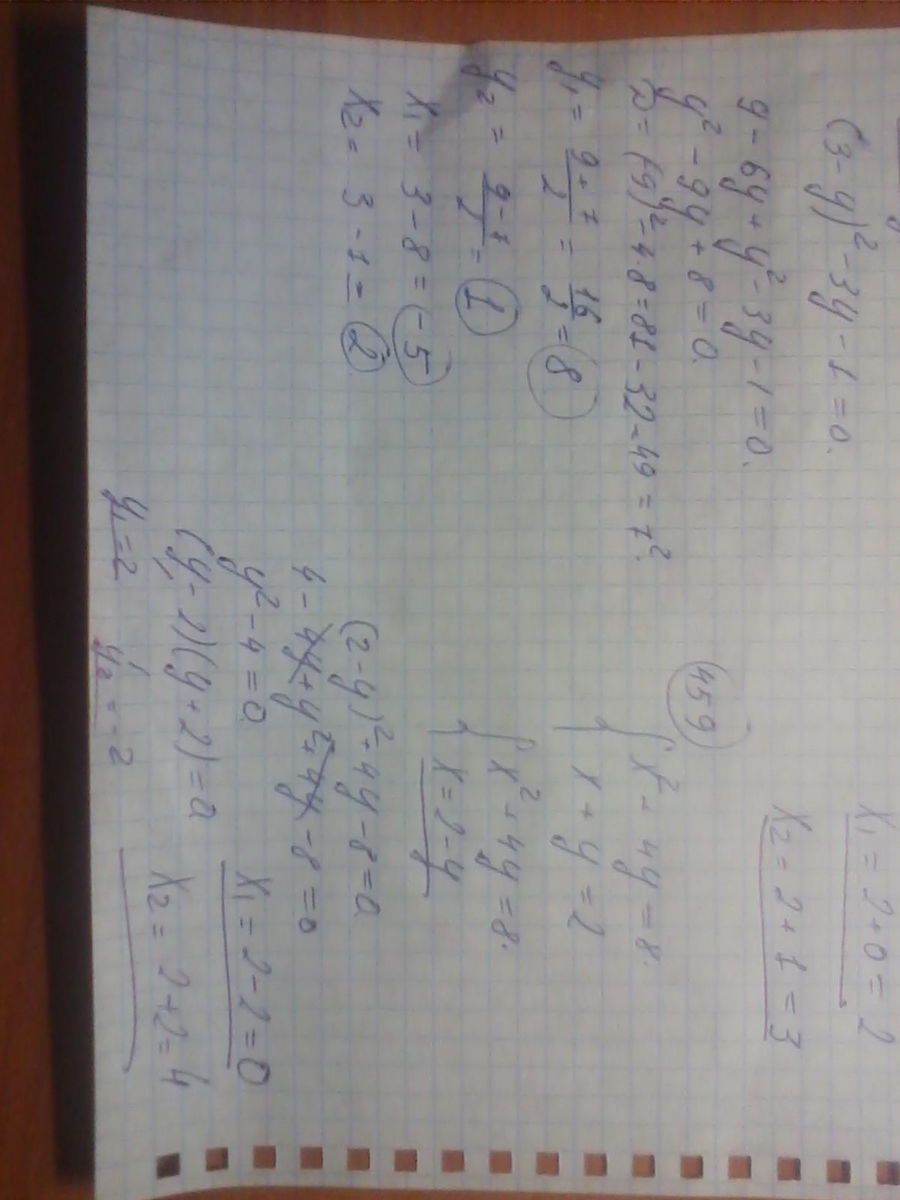 (3-y)²-3y-1=0.
9-6y+y²-3y-1=0.
y²-9y+8=0.
D=(-9)²-4·8=81-32-49=7².
y₁=(9+7)/2=16/2=8
y₂=(9-7)/2=1
x₁=3-8=-5
x₂=3-1=2
x₁=2+0=2
x₂=2+1=3
459
x²+4y=8.
x+y=2
x²+4y=8.
x=2-y
(2-y)²+4y-8=0.
4-4y+y²+4y-8=0
y²-4=0
(y-2)(y+2)=0
y₁=2 y₂=-2
x₁=2-2=0
x₂=2+2=4